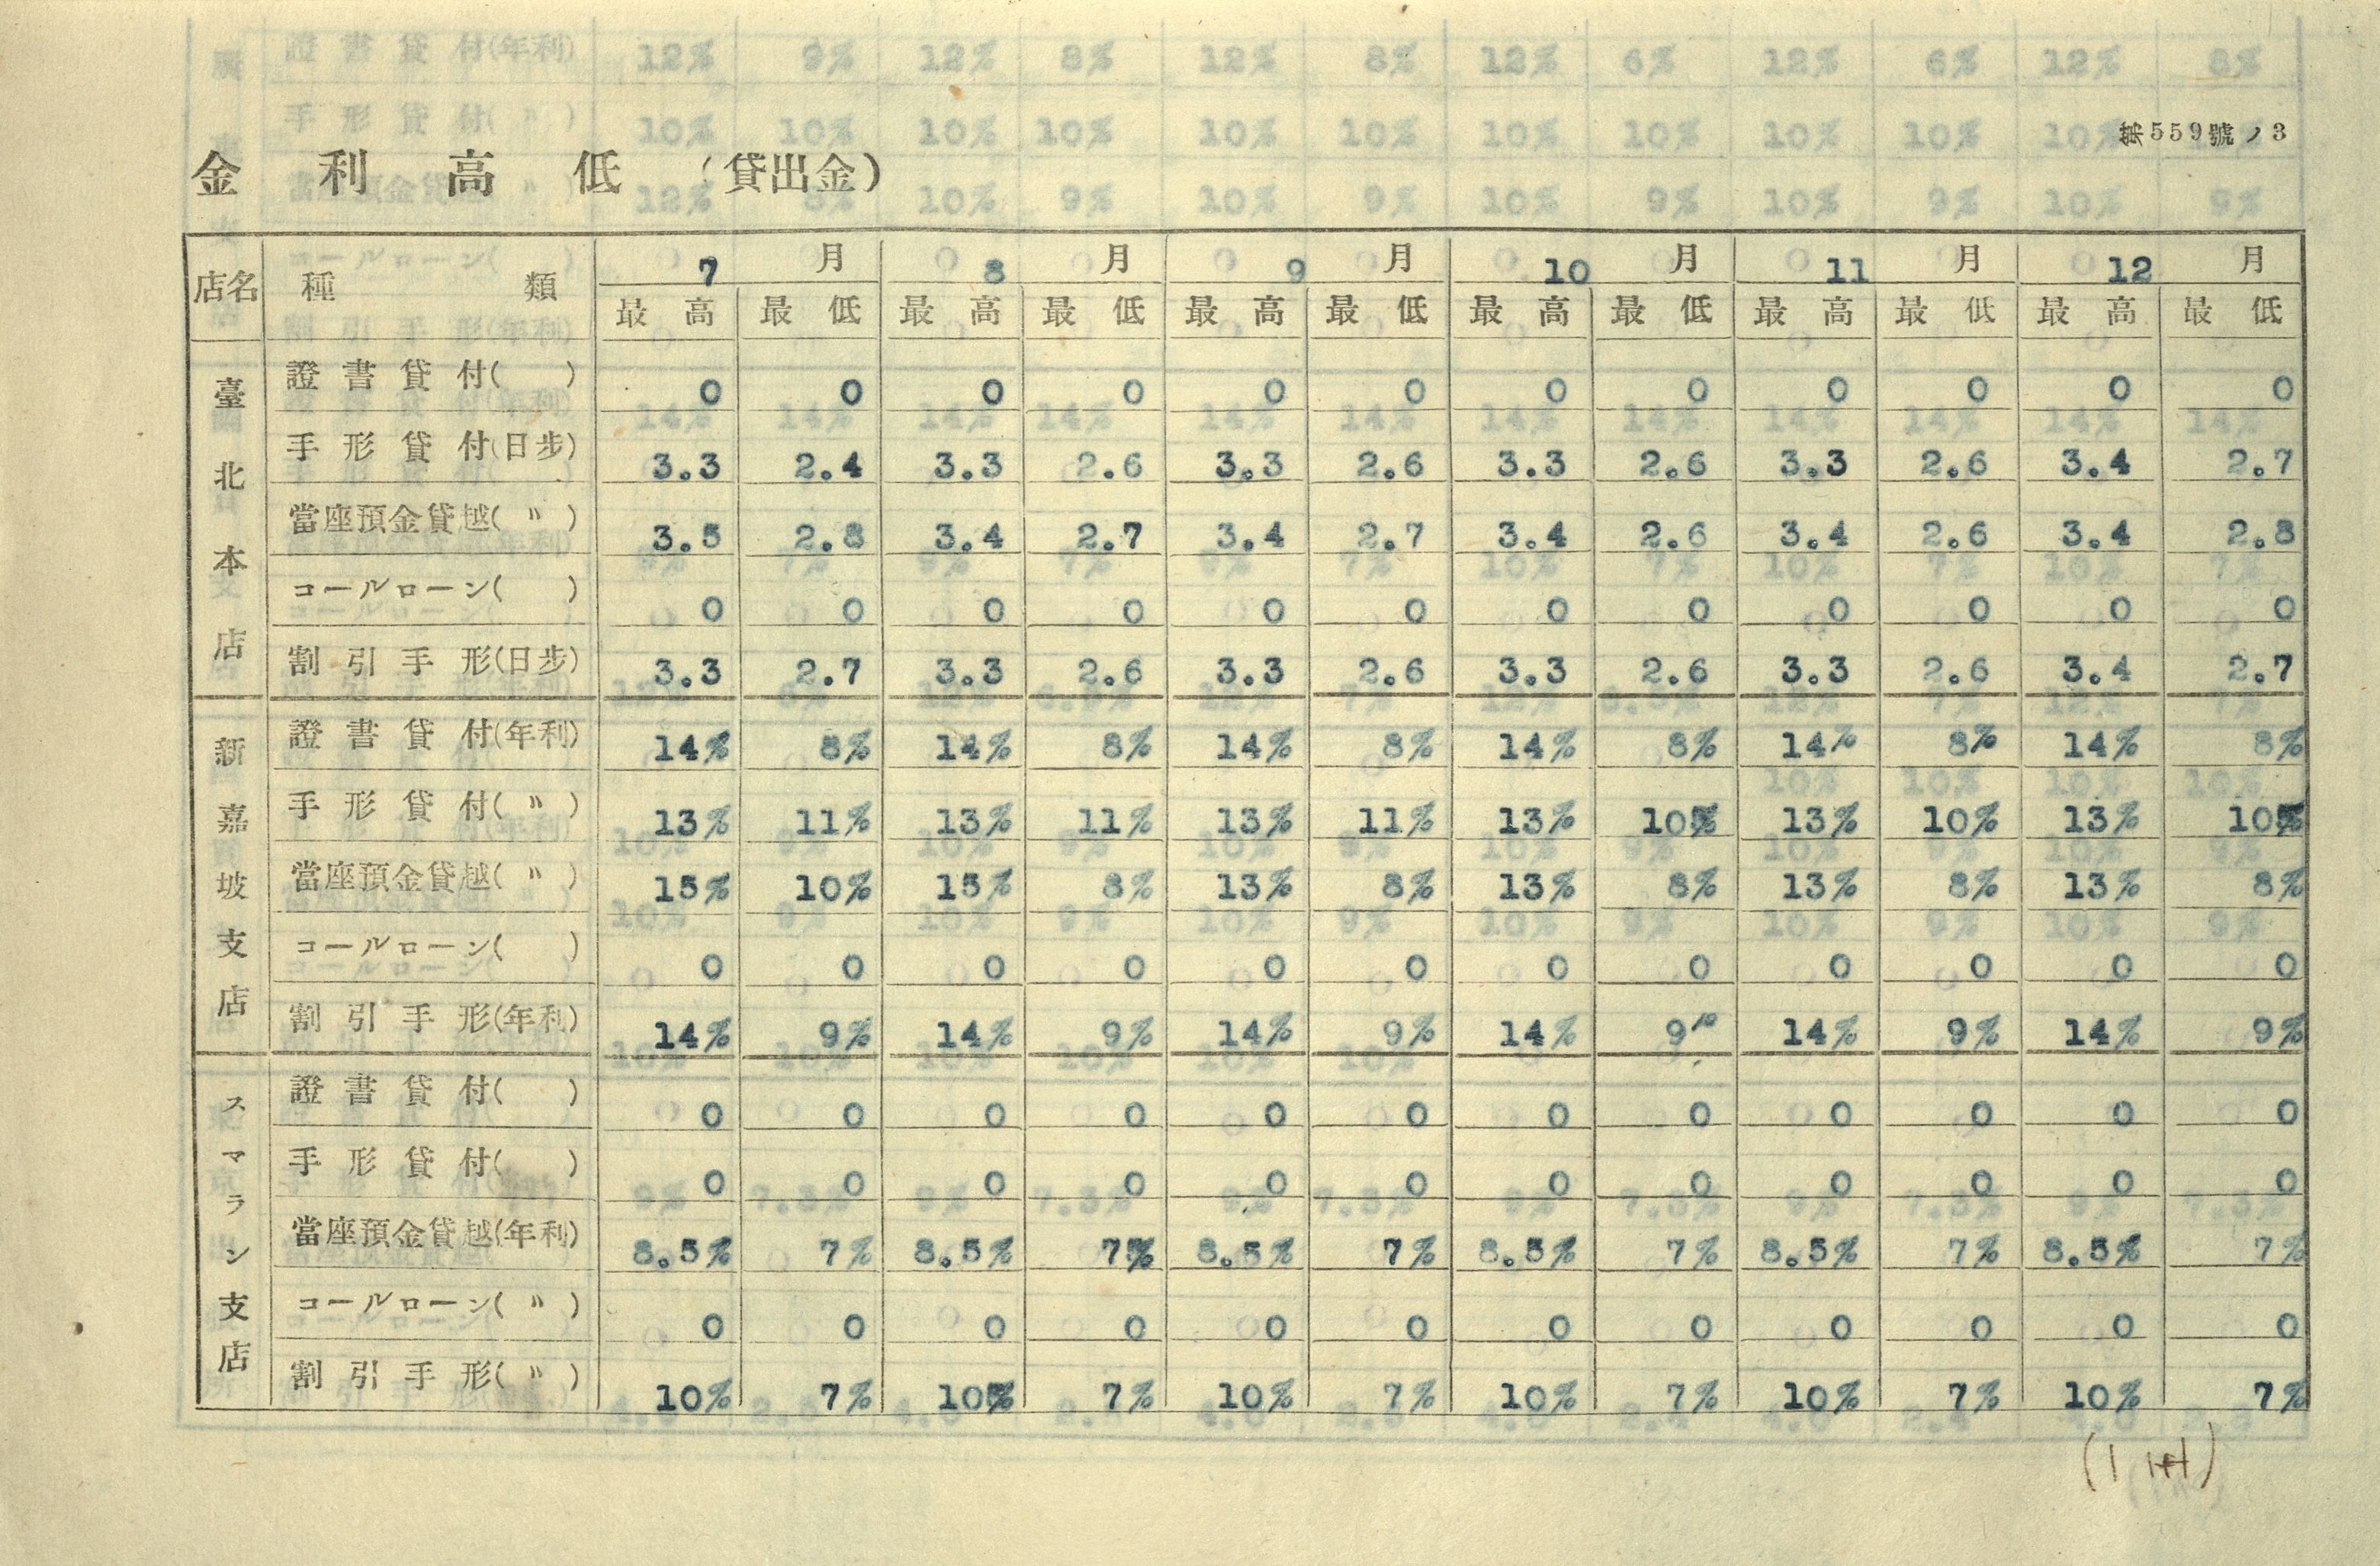 第559號ノ3
金利高低（貸出金）
店名 種類 7月 8月 9月 10月 11月 12月
最高 最低 最高 最低 最高 最低 最高 最低 最高 最低 最高 最低
臺北本店
證書貸付( ) 0 0 0 0 0 0 0 0 0 0 0 0
手形貸付(日步) 3.3 2.4 3.3 2.6 3.3 2.6 3.3 2.6 3.3 2.6 3.4 2.7
當座預金貸越( 〃 ) 3.5 2.8 3.4 2.7 3.4 2.7 3.4 2.6 3.4 2.6 3.4 2.8
コールローン( ) 0 0 0 0 0 0 0 0 0 0 0 0
割引手形(日步) 3.3 2.7 3.3 2.6 3.3 2.6 3.3 2.6 3.3 2.6 3.4 2.7
新嘉坡支店
證書貸付(年利) 14% 8% 14% 8% 14% 8% 14% 8% 14% 8% 14% 8%
手形貸付( 〃 ) 13% 11% 13% 11% 13% 11% 13% 10% 13% 10% 13% 10%
當座預金貸越( 〃 ) 15% 10% 15% 8% 13% 8% 13% 8% 13% 8% 13% 8%
コールローン( ) 0 0 0 0 0 0 0 0 0 0 0 0
割引手形(年利) 14% 9% 14% 9% 14% 9% 14% 9% 14% 9% 14% 9%
スマラン支店
證書貸付( ) 0 0 0 0 0 0 0 0 0 0 0 0
手形貸付( ) 0 0 0 0 0 0 0 0 0 0 0 0
當座預金貸越(年利) 8.5% 7% 8.5% 7% 8.5% 7% 8.5% 7% 8.5% 7% 8.5% 7%
コールローン( 〃 ) 0 0 0 0 0 0 0 0 0 0 0 0
割引手形( 〃 ) 10% 7% 10% 7% 10% 7% 10% 7% 10% 7% 10% 7%